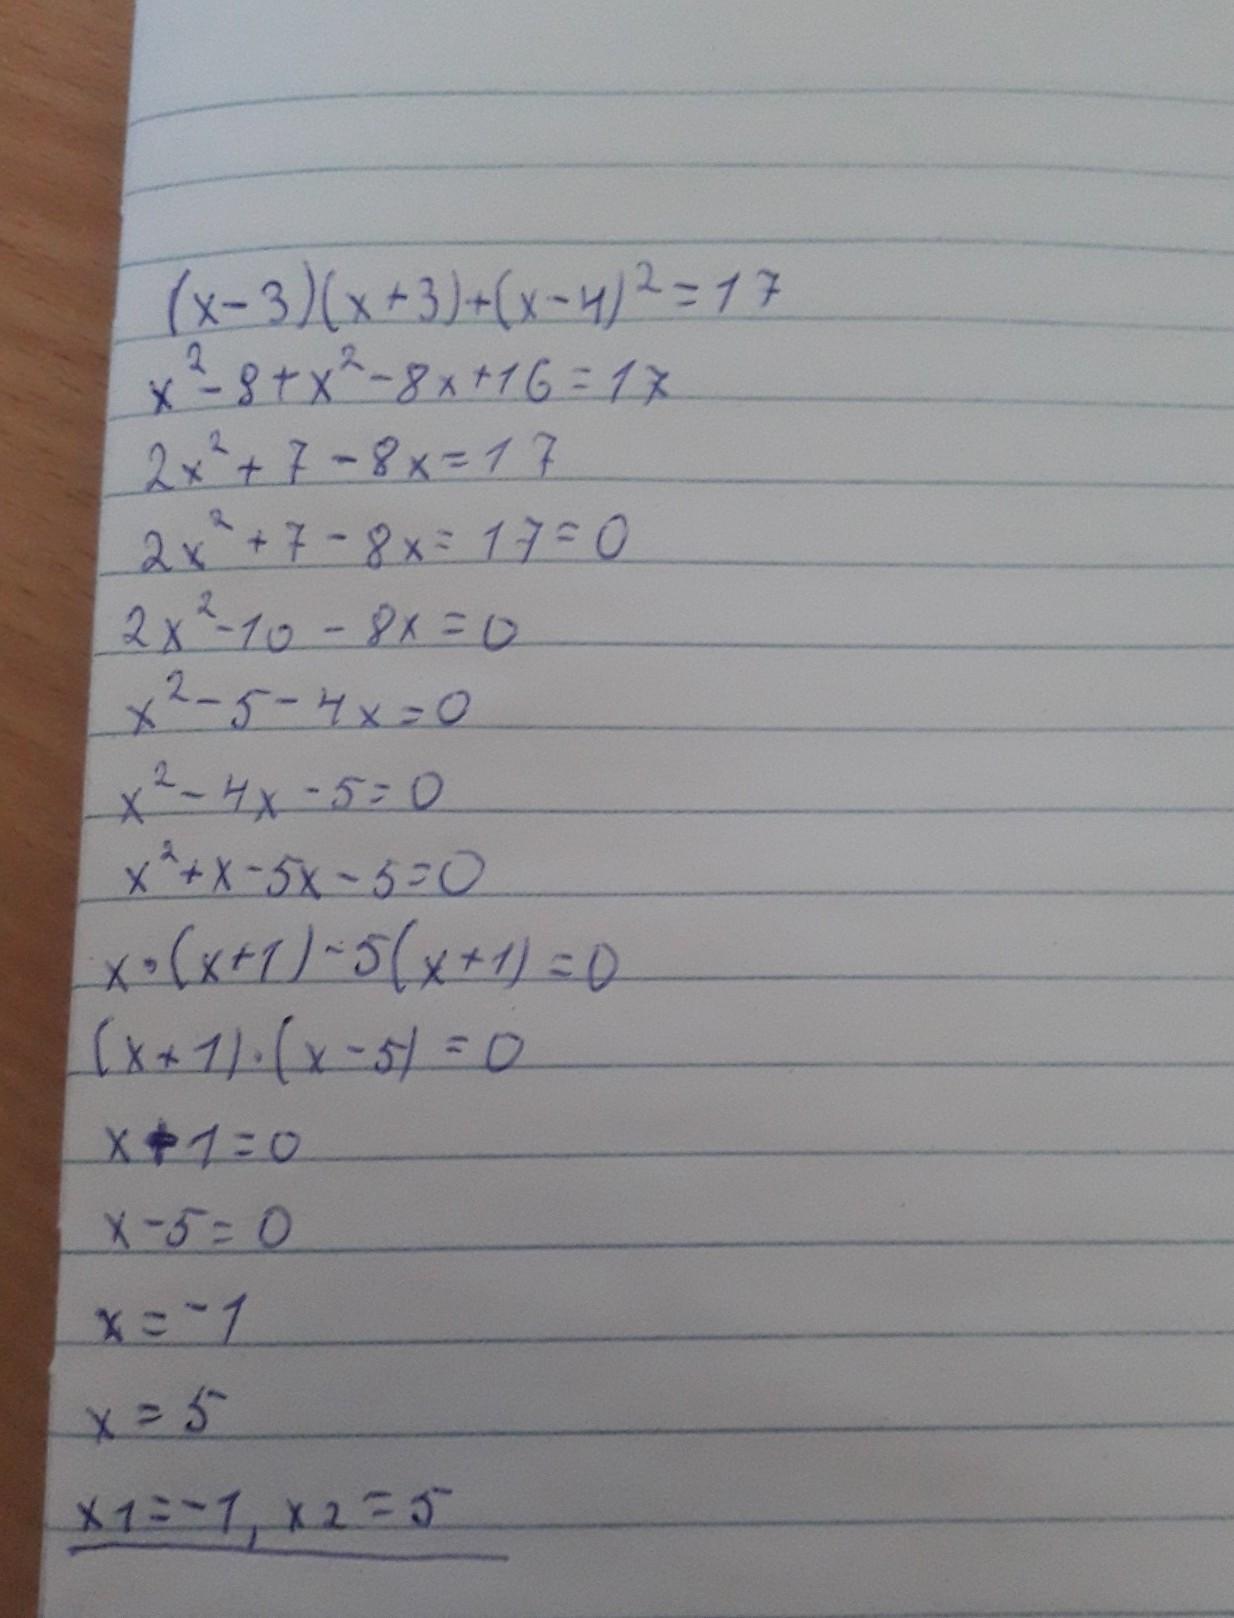 (x-3)(x+3)+(x-4)²=17
x²-8+x²-8x+16=17
2x²+7-8x=17
2x²+7-8x=17=0
2x²-10-8x=0
x²-5-4x=0
x²-4x-5=0
x²+x-5x-5=0
x·(x+1)-5(x+1)=0
(x+1)·(x-5)=0
x+1=0
x-5=0
x=-1
x=5
x1=-1, x2=5